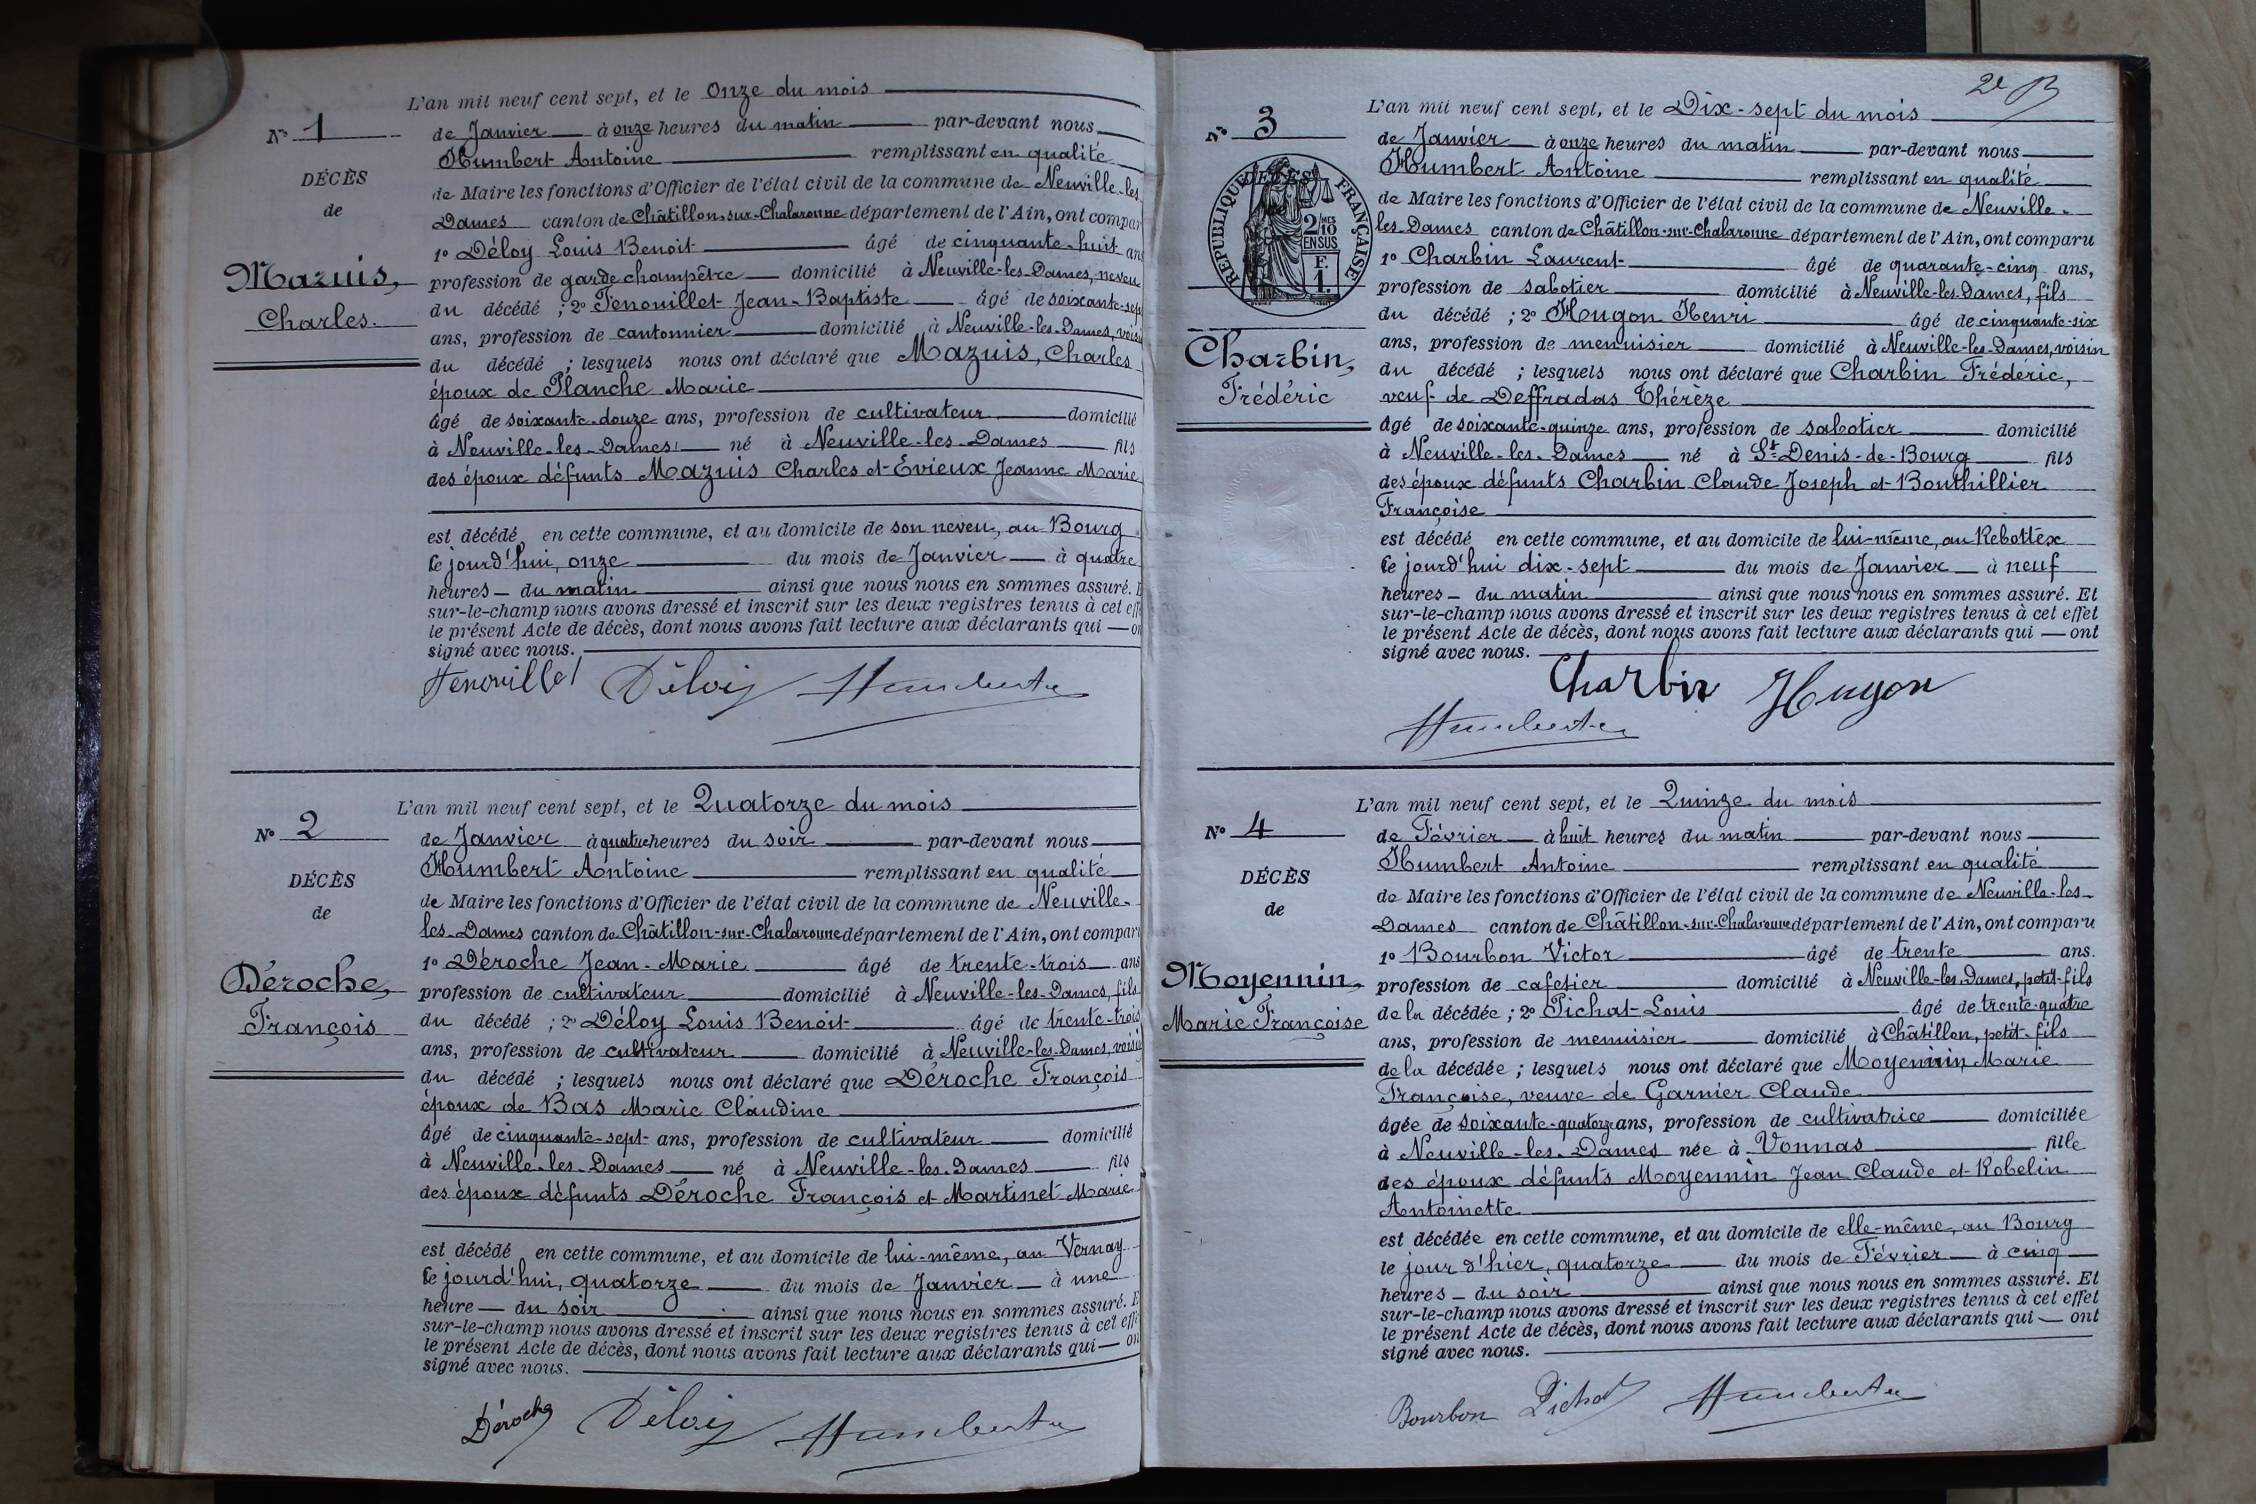 N° 1
DÉCÈS
de
Mazuis,
Charles.
L'an mil neuf cent sept, et le Onze du mois
de Janvier à onze heures du matin par-devant nous
Humbert Antoine remplissant en qualité
de Maire les fonctions d'Officier de l'état civil de la commune de Neuville-les
Dames canton de Châtillon-sur-Chalaronne département de l'Ain, ont compar
1° Déloy Louis Benoit âgé de cinquante-huit ans
profession de garde champêtre domicilié à Neuville-les-Dames, neveu
du décédé ; 2° Fenouillet Jean-Baptiste âgé de soixante-sept
ans, profession de cantonnier domicilié à Neuville-les-Dames, voisin
du décédé ; lesquels nous ont déclaré que Mazuis, Charles
époux de Planche Marie
âgé de soixante-douze ans, profession de cultivateur domicilié
à Neuville-les-Dames né à Neuville-les-Dames fils
des époux défunts Mazuis Charles et Évieux Jeanne Marie
est décédé en cette commune, et au domicile de son neveu, au Bourg
le jourd'hui, onze du mois de Janvier à quatre
heures du matin ainsi que nous nous en sommes assuré. E
sur-le-champ nous avons dressé et inscrit sur les deux registres tenus à cet eff
le présent Acte de décès, dont nous avons fait lecture aux déclarants qui on
signé avec nous.
Fenouillet Déloy Humbert
N° 2
DÉCÈS
de
Déroche,
François
L'an mil neuf cent sept, et le Quatorze du mois
de Janvier à quatre heures du soir par-devant nous
Humbert Antoine remplissant en qualité
de Maire les fonctions d'Officier de l'état civil de la commune de Neuville-
les-Dames canton de Châtillon-sur-Chalaronne département de l'Ain, ont compar
1° Déroche Jean-Marie âgé de trente-trois ans
profession de cultivateur domicilié à Neuville-les-Dames, fils
du décédé ; 2° Déloy Louis Benoit âgé de trente-trois
ans, profession de cultivateur domicilié à Neuville-les-Dames, voisin
du décédé ; lesquels nous ont déclaré que Déroche François
époux de Bas Marie Claudine
âgé de cinquante-sept ans, profession de cultivateur domicilié
à Neuville-les-Dames né à Neuville-les-Dames fils
des époux défunts Déroche François et Martinet Marie
est décédé en cette commune, et au domicile de lui-même, au Vernay
le jourd'hui, quatorze du mois de Janvier à une
heure du soir ainsi que nous nous en sommes assuré. E
sur-le-champ nous avons dressé et inscrit sur les deux registres tenus à cet effe
le présent Acte de décès, dont nous avons fait lecture aux déclarants qui on
signé avec nous.
Déroche Déloy Humbert
2e
N° 3
RÉPUBLIQUE FRANÇAISE
2/10 MES
EN SUS
F.
1.
Charbin,
Frédéric
L'an mil neuf cent sept, et le Dix-sept du mois
de Janvier à onze heures du matin par-devant nous
Humbert Antoine remplissant en qualité
de Maire les fonctions d'Officier de l'état civil de la commune de Neuville-
les-Dames canton de Châtillon-sur-Chalaronne département de l'Ain, ont comparu
1° Charbin Laurent âgé de quarante-cinq ans,
profession de sabotier domicilié à Neuville-les-Dames, fils
du décédé ; 2° Hugon Henri âgé de cinquante-six
ans, profession de menuisier domicilié à Neuville-les-Dames, voisin
du décédé ; lesquels nous ont déclaré que Charbin Fréderic,
veuf de Deffradas Thérèze
âgé de soixante-quinze ans, profession de sabotier domicilié
à Neuville-les-Dames né à St-Denis-de-Bourg fils
des époux défunts Charbin Claude Joseph et Bouthillier
Françoise
est décédé en cette commune, et au domicile de lui-même, au Rebottex
le jourd'hui dix-sept du mois de Janvier à neuf
heures du matin ainsi que nous nous en sommes assuré. Et
sur-le-champ nous avons dressé et inscrit sur les deux registres tenus à cet effet
le présent Acte de décès, dont nous avons fait lecture aux déclarants qui ont
signé avec nous.
Charbin Hugon
Humbert
N° 4
DÉCÈS
de
Moyennin,
Marie Françoise
L'an mil neuf cent sept, et le Quinze du mois
de Février à huit heures du matin par-devant nous
Humbert Antoine remplissant en qualité
de Maire les fonctions d'Officier de l'état civil de la commune de Neuville-les-
Dames canton de Châtillon-sur-Chalaronne département de l'Ain, ont comparu
1° Bourbon Victor âgé de trente ans.
profession de cafetier domicilié à Neuville-les-Dames, petit-fils
de la décédée ; 2° Pichat Louis âgé de trente-quatre
ans, profession de menuisier domicilié à Châtillon, petit-fils
de la décédée ; lesquels nous ont déclaré que Moyennin Marie
Françoise, veuve de Garnier Claude
âgée de soixante-quatorze ans, profession de cultivatrice domiciliée
à Neuville-les-Dames née à Vonnas fille
des époux défunts Moyennin Jean Claude et Robelin
Antoinette
est décédée en cette commune, et au domicile de elle-même, au Bourg
le jour d'hier, quatorze du mois de Février à cinq
heures du soir ainsi que nous nous en sommes assuré. Et
sur-le-champ nous avons dressé et inscrit sur les deux registres tenus à cet effet
le présent Acte de décès, dont nous avons fait lecture aux déclarants qui ont
signé avec nous.
Bourbon Pichat Humbert